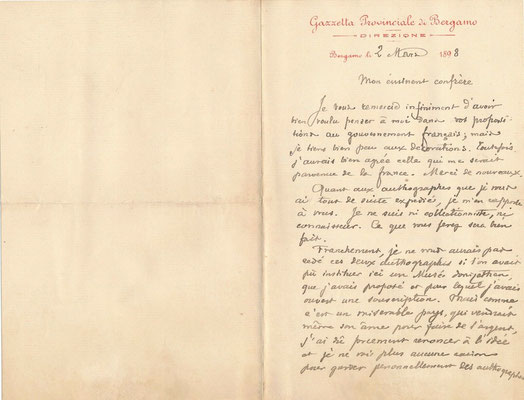 Gazzetta Provinciale di Bergamo
DIREZIONE
Bergamo li 2 Mars 1898
Mon éminent confrère
Je vous remercie infiniment d'avoir
bien voulu penser à moi dans vos proposi-
tions au gouvernement français; mais
je tiens bien peu aux décorations. Toutefois,
j'aurais bien agréé celle qui me serait
parvenue de la france. Merci de nouveaux.
Quant aux authographes que je vous
ai tout de suite expédiés, je m'en rapporte
à vous. Je ne suis ni collectionniste, ni
connaisseur. Ce que vous ferez sera bien
fait.
Franchement, je ne vous aurais pas
cédé ces deux authographes si l'on avait
pû instituer ici un Musée donizettien,
que j'avais proposé et pour lequel j'avais
ouvert une souscription. Mais comme
c'est un misérable pays, qui vendrait
même son âme pour faire de l'argent,
j'ai dû forcement renoncer à l'idée
et je ne vois plus aucune raison
pour garder personnellement des authographes